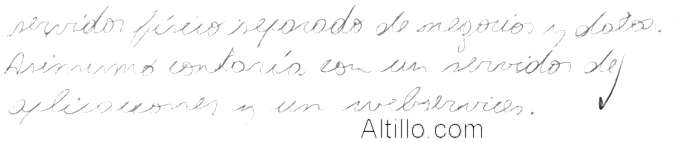 servidor físico separado de negocios y datos.
Asimismo contaría con un servidor de
aplicaciones y un webservices.
Altillo.com